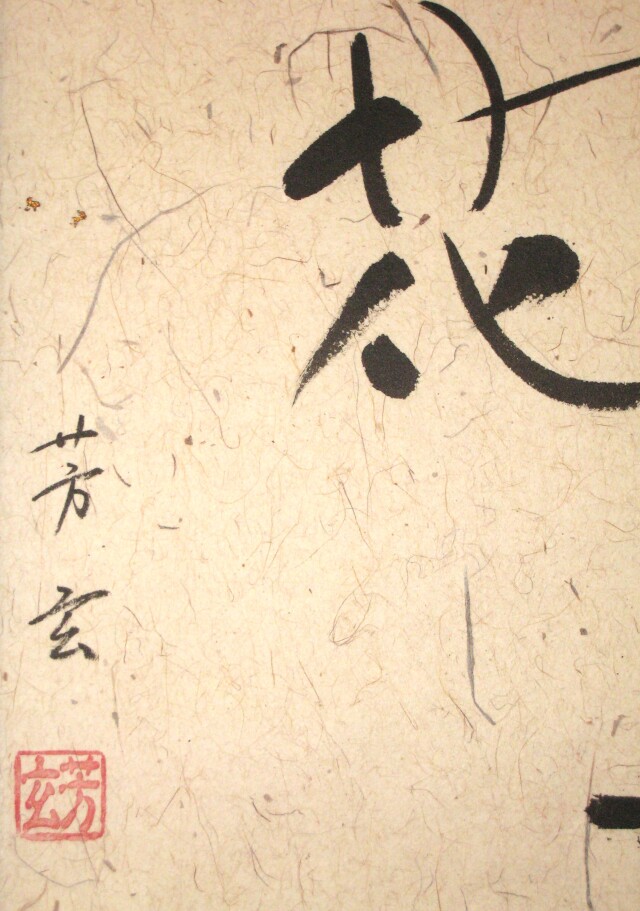 花
芳玄
芳玄